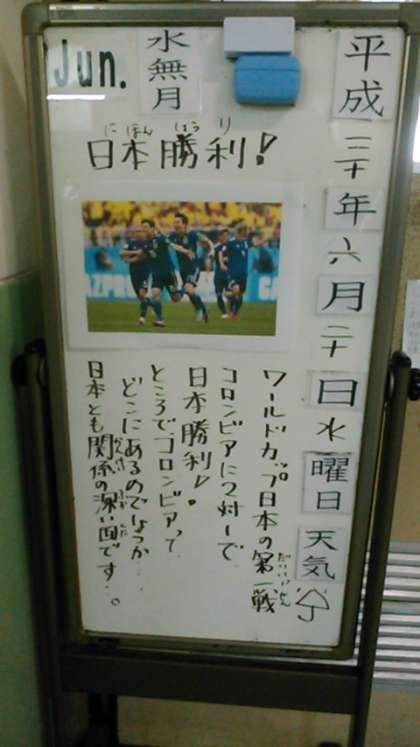 Jun.
水無月
平成三十年六月二十日水曜日天気
にほんしょうり
日本勝利!
ワールドカップ日本の第一戦
だいいっせん
コロンビアに2対1で
日本勝利!。
ところでコロンビアって
どこにあるのでしょうか…
日本とも関係の深い国です。